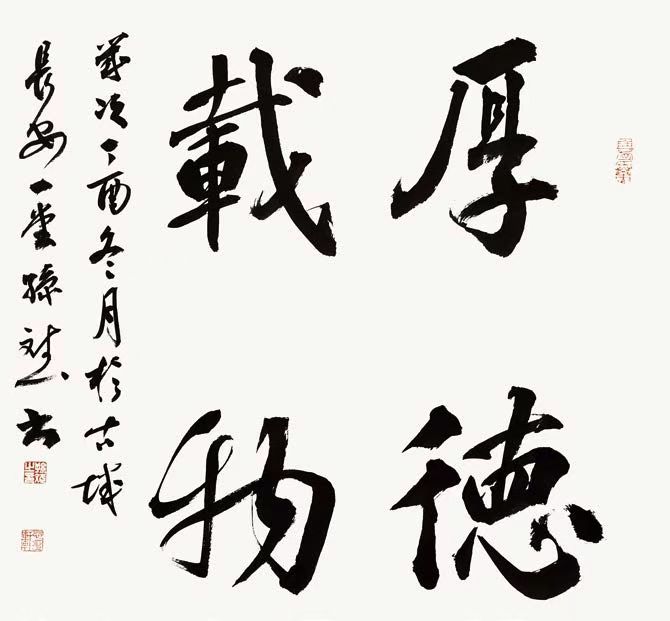 厚德
載物
歲次丁酉冬月於古城
長安一堂孫斌書